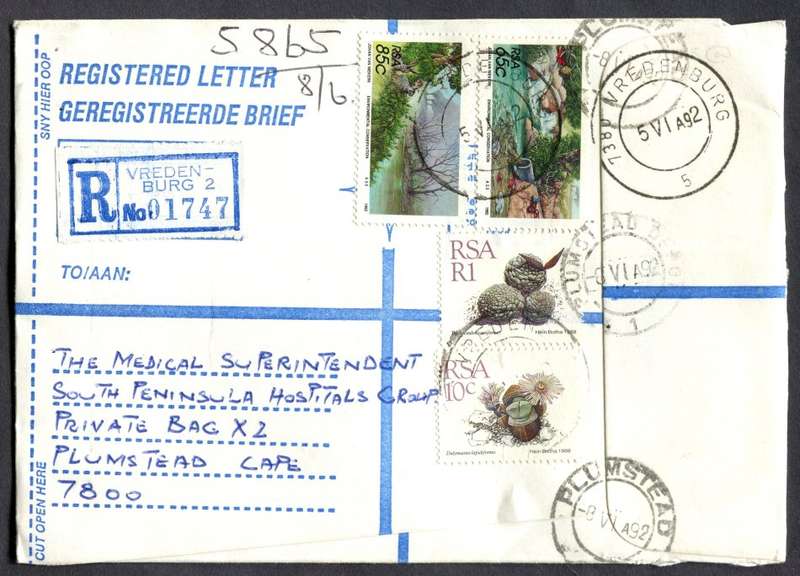 SNY HIER OOP
5865
8/6
REGISTERED LETTER
GEREGISTREERDE BRIEF
R
VREDEN-
BURG 2
No 01747
TO/AAN:
THE MEDICAL SUPERINTENDENT
SOUTH PENINSULA HOSPITALS GROUP
PRIVATE BAG X2
PLUMSTEAD CAPE
7800
CUT OPEN HERE
RSA
85c
RSA
65c
RSA
R1
Hein Botha 1988
RSA
10c
Hein Botha 1988
7380 VREDENBURG
5 VI A92
5
PLUMSTEAD
-8 VI A92
1
PLUMSTEAD
-8 VI A92